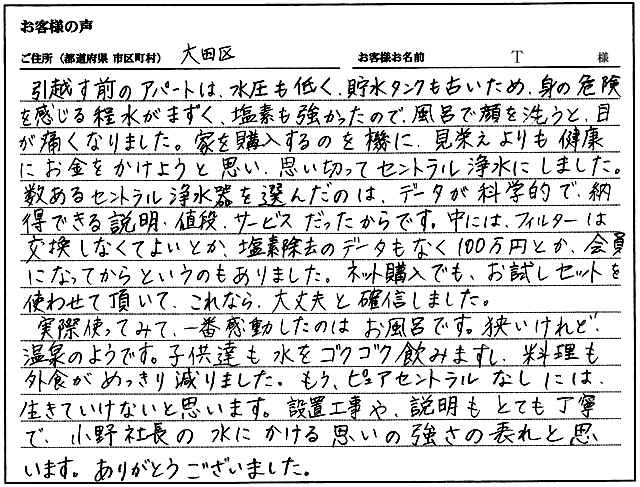 お客様の声
ご住所（都道府県 市区町村） 大田区 お客様お名前 T 様
引越す前のアパートは、水圧も低く、貯水タンクも古いため、身の危険
を感じる程水がまずく、塩素も強かったので、風呂で顔を洗うと、目
が痛くなりました。家を購入するのを機に、見栄えよりも健康
にお金をかけようと思い、思い切ってセントラル浄水にしました。
数あるセントラル浄水器を選んだのは、データが科学的で、納
得できる説明、値段、サービスだったからです。中には、フィルターは
交換しなくてよいとか、塩素除去のデータもなく100万円とか、会員
になってからというのもありました。ネット購入でも、お試しセットを
使わせて頂いて、これなら、大丈夫と確信しました。
実際使ってみて、一番感動したのはお風呂です。狭いけれど、
温泉のようです。子供達も水をゴクゴク飲みますし、料理も
外食がめっきり減りました。もう、ピュアセントラルなしには、
生きていけないと思います。設置工事や、説明もとても丁寧
で、小野社長の水にかける思いの強さの表れと思
います。ありがとうございました。